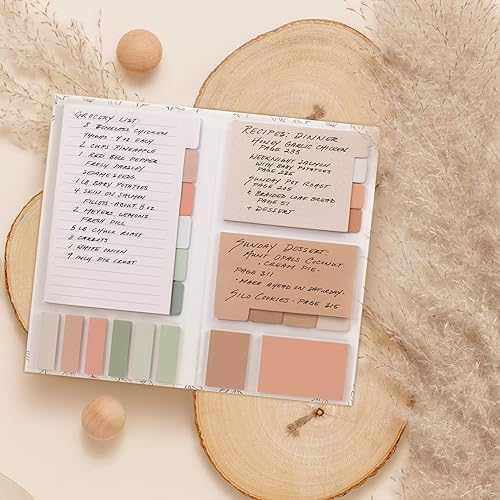 GROCERY LIST:
8 BONELESS CHICKEN
THIGHS - 4 OZ EACH
2 CUPS PINEAPPLE
1 RED BELL PEPPER
FRESH PARSLEY
SESAME SEEDS
1 LB BABY POTATOES
4 SKIN ON SALMON
FILLETS - ABOUT 8 OZ
2 MEYERS LEMONS
FRESH DILL
5 LB CHUCK ROAST
8 CARROTS
1 WHITE ONION
9 INCH PIE CRUST
RECIPES: DINNER
HONEY GARLIC CHICKEN
PAGE 233
WEEKNIGHT SALMON
WITH BABY POTATOES
PAGE
SUNDAY POT ROAST
PAGE 205
BRAIDED LOAF BREAD
PAGE 51
+ DESSERT
SUNDAY DESSERT:
AUNT OPALS COCONUT
• CREAM PIE •
PAGE 311
• MAKE AHEAD ON SATURDAY •
SILO COOKIES • PAGE 215